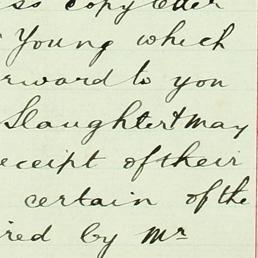 ss copy letter
Young which
rward to you
Slaughter & may
eceipt of their
certain of the
red by Mr